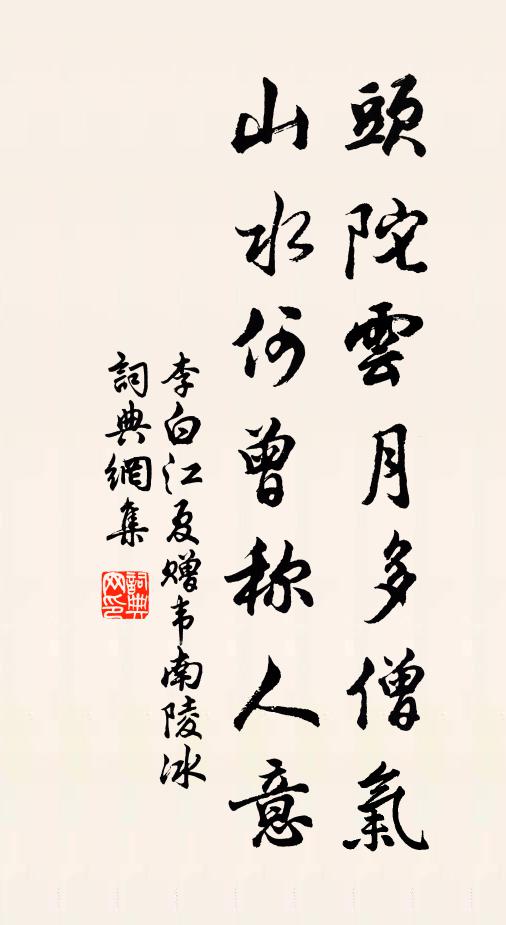 頭陀雲月多僧氣
山水何曾称人意
李白江夏赠韦南陵冰
詞典網集
詞典
网印